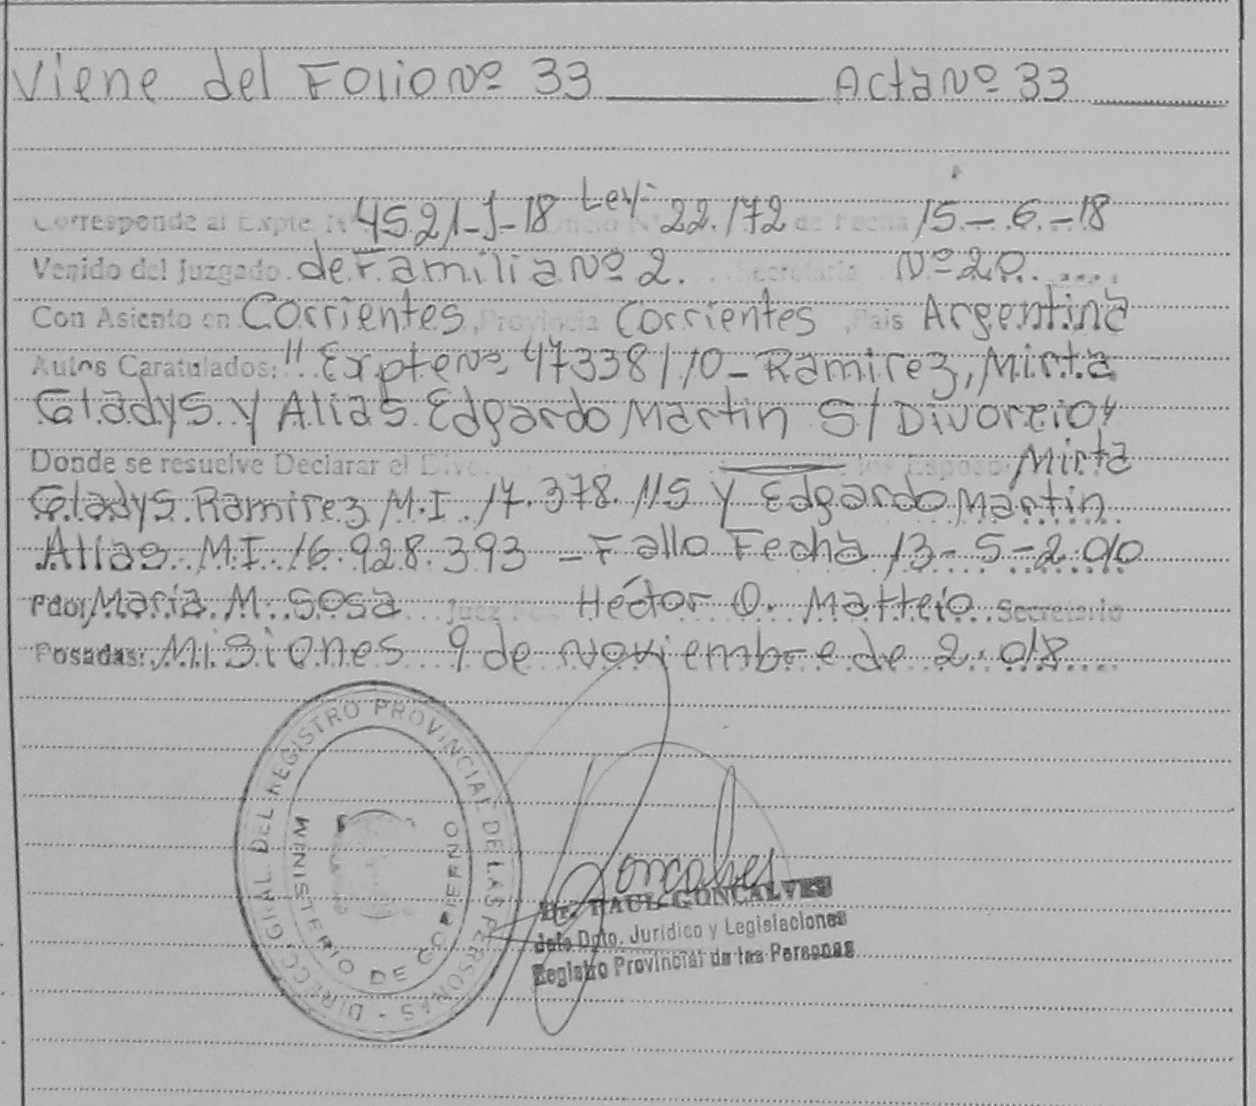 Viene del Folio Nº 33 Acta Nº 33
Corresponde al Expte. Nº 4521-J-18 Ley- 22.172 de Fecha 15-6-18
Venido del Juzgado de Familia Nº 2. Secretaria Nº 20.
Con Asiento en Corrientes, Provincia Corrientes, Pais Argentina
Autos Caratulados: "Expte Nº 47338/10-Ramirez, Mirta
Gladys y Alias Edgardo Martin S/ Divorcio"
Donde se resuelve Declarar el los Esposo: Mirta
Gladys Ramirez M.I. 17.378.115 y Edgardo Martin
Alias M.I. 16.928.393 - Fallo Fecha 13-5-2.010
Fdo: Maria M. Sosa Juez Héctor O. Matteio Secretario
Posadas: Misiones 9 de noviembre de 2.018
DIRECC. GRAL. DEL REGISTRO PROVINCIAL DE LAS PERSONAS
MINISTERIO DE GOBIERNO
Goncalves
Dr. RAUL GONCALVES
Jefe Dpto. Jurídico y Legislaciones
Registro Provincial de las Personas